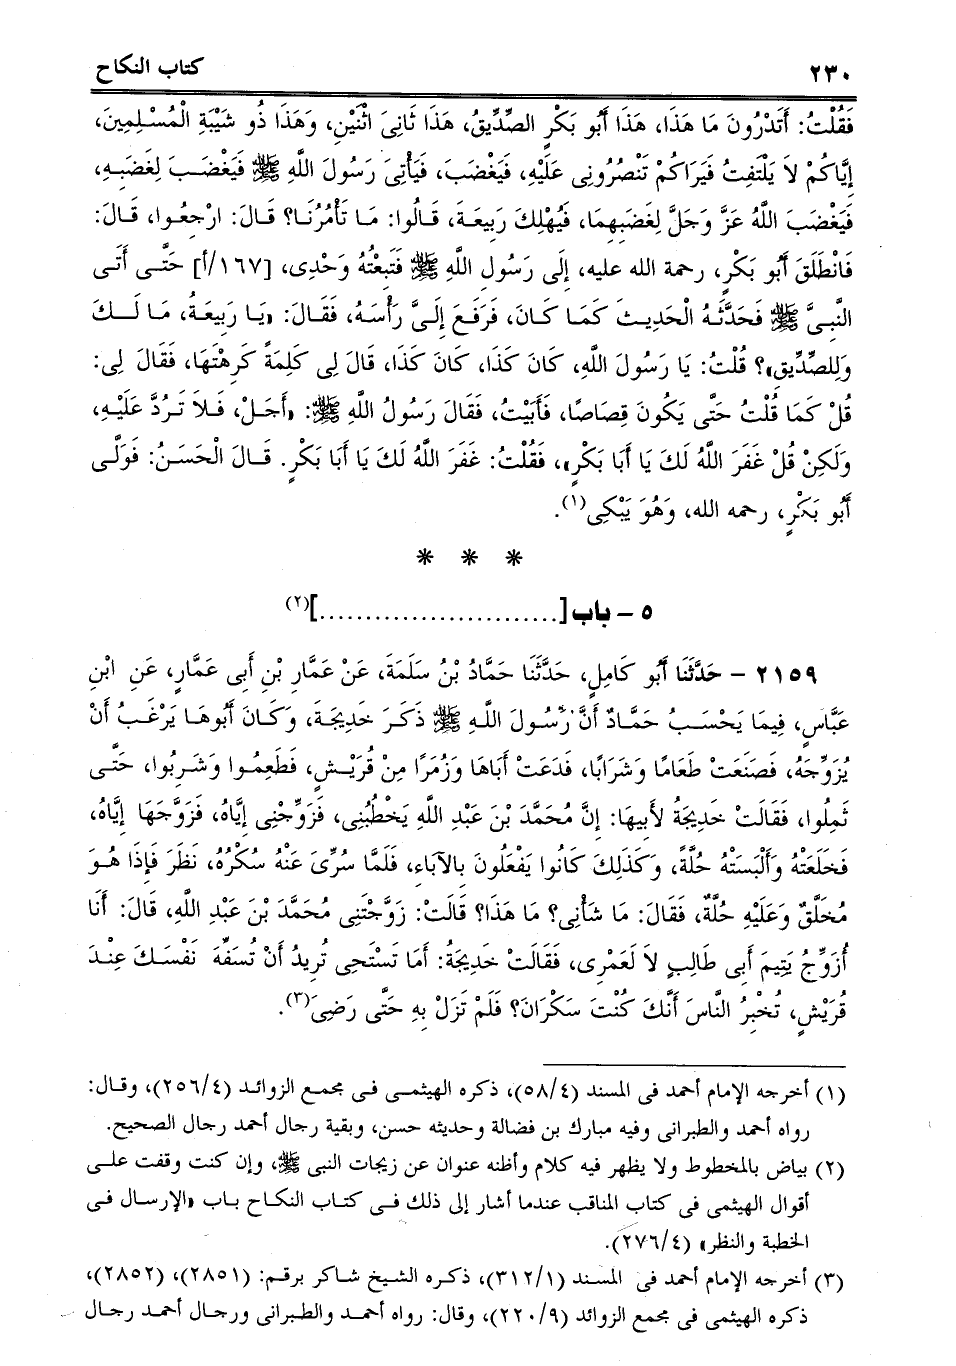 ٢٣٠ كتاب النكاح
فَقُلْتُ: أَتَدْرُونَ مَا هَذَا، هَذَا أَبُو بَكْرٍ الصِّدِّيقُ، هَذَا ثَانِىَ اثْنَيْنِ، وَهَذَا ذُو شَيْبَةِ الْمُسْلِمِينَ،
إِيَّاكُمْ لاَ يَلْتَفِتُ فَيَرَاكُمْ تَنْصُرُونِى عَلَيْهِ، فَيَغْضَبَ، فَيَأْتِىَ رَسُولَ اللَّهِ ﷺ فَيَغْضَبَ لِغَضَبِهِ،
فَيَغْضَبَ اللَّهُ عَزَّ وَجَلَّ لِغَضَبِهِمَا، فَيُهْلِكَ رَبِيعَةَ، قَالُوا: مَا تَأْمُرُنَا؟ قَالَ: ارْجِعُوا، قَالَ:
فَانْطَلَقَ أَبُو بَكْرٍ، رحمة الله عليه، إِلَى رَسُولِ اللَّهِ ﷺ فَتَبِعْتُهُ وَحْدِى، [١٦٧/أ] حَتَّى أَتَى
النَّبِىَّ ﷺ فَحَدَّثَهُ الْحَدِيثَ كَمَا كَانَ، فَرَفَعَ إِلَىَّ رَأْسَهُ، فَقَالَ: «يَا رَبِيعَةُ، مَا لَكَ
وَلِلصِّدِّيقِ»؟ قُلْتُ: يَا رَسُولَ اللَّهِ، كَانَ كَذَا، كَانَ كَذَا، قَالَ لِى كَلِمَةً كَرِهْتَهَا، فَقَالَ لِى:
قُلْ كَمَا قُلْتُ حَتَّى يَكُونَ قِصَاصًا، فَأَبَيْتُ، فَقَالَ رَسُولُ اللَّهِ ﷺ: «أَجَلْ، فَلاَ تَرُدَّ عَلَيْهِ،
وَلَكِنْ قُلْ غَفَرَ اللَّهُ لَكَ يَا أَبَا بَكْرٍ»، فَقُلْتُ: غَفَرَ اللَّهُ لَكَ يَا أَبَا بَكْرٍ. قَالَ الْحَسَنُ: فَوَلَّى
أَبُو بَكْرٍ، رحمه الله، وَهُوَ يَبْكِى(١).
* * *
٥ – باب [..........................](٢)
٢١٥٩ – حَدَّثَنَا أَبُو كَامِلٍ، حَدَّثَنَا حَمَّادُ بْنُ سَلَمَةَ، عَنْ عَمَّارِ بْنِ أَبِى عَمَّارٍ، عَنِ ابْنِ
عَبَّاسٍ، فِيمَا يَحْسَبُ حَمَّادٌ أَنَّ رَسُولَ اللَّهِ ﷺ ذَكَرَ خَدِيجَةَ، وَكَانَ أَبُوهَا يَرْغَبُ أَنْ
يُزَوِّجَهُ، فَصَنَعَتْ طَعَامًا وَشَرَابًا، فَدَعَتْ أَبَاهَا وَزُمَرًا مِنْ قُرَيْشٍ، فَطَعِمُوا وَشَرِبُوا، حَتَّى
ثَمِلُوا، فَقَالَتْ خَدِيجَةُ لأَبِيهَا: إِنَّ مُحَمَّدَ بْنَ عَبْدِ اللَّهِ يَخْطُبُنِى، فَزَوِّجْنِى إِيَّاهُ، فَزَوَّجَهَا إِيَّاهُ،
فَخَلَعَتْهُ وَأَلْبَسَتْهُ حُلَّةً، وَكَذَلِكَ كَانُوا يَفْعَلُونَ بِالآبَاءِ، فَلَمَّا سُرِّىَ عَنْهُ سُكْرُهُ، نَظَرَ فَإِذَا هُوَ
مُخَلَّقٌ وَعَلَيْهِ حُلَّةٌ، فَقَالَ: مَا شَأْنِى؟ مَا هَذَا؟ قَالَتْ: زَوَّجْتَنِى مُحَمَّدَ بْنَ عَبْدِ اللَّهِ، قَالَ: أَنَا
أُزَوِّجُ يَتِيمَ أَبِى طَالِبٍ لاَ لَعَمْرِى، فَقَالَتْ خَدِيجَةُ: أَمَا تَسْتَحِى تُرِيدُ أَنْ تُسَفِّهَ نَفْسَكَ عِنْدَ
قُرَيْشٍ، تُخْبِرُ النَّاسَ أَنَّكَ كُنْتَ سَكْرَانَ؟ فَلَمْ تَزَلْ بِهِ حَتَّى رَضِىَ(٣).
(١) أخرجه الإمام أحمد فى المسند (٥٨/٤)، ذكره الهيثمى فى مجمع الزوائد (٢٥٦/٤)، وقال:
رواه أحمد والطبرانى وفيه مبارك بن فضالة وحديثه حسن، وبقية رجال أحمد رجال الصحيح.
(٢) بياض بالمخطوط ولا يظهر فيه كلام وأظنه عنوان عن زيجات النبى ﷺ، وإن كنت وقفت على
أقوال الهيثمى فى كتاب المناقب عندما أشار إلى ذلك فى كتاب النكاح باب «الإرسال فى
الخطبة والنظر» (٢٧٦/٤).
(٣) أخرجه الإمام أحمد فى المسند (٣١٢/١)، ذكره الشيخ شاكر برقم: (٢٨٥١)، (٢٨٥٢)،
ذكره الهيثمى فى مجمع الزوائد (٢٢٠/٩)، وقال: رواه أحمد والطبرانى ورجال أحمد رجال